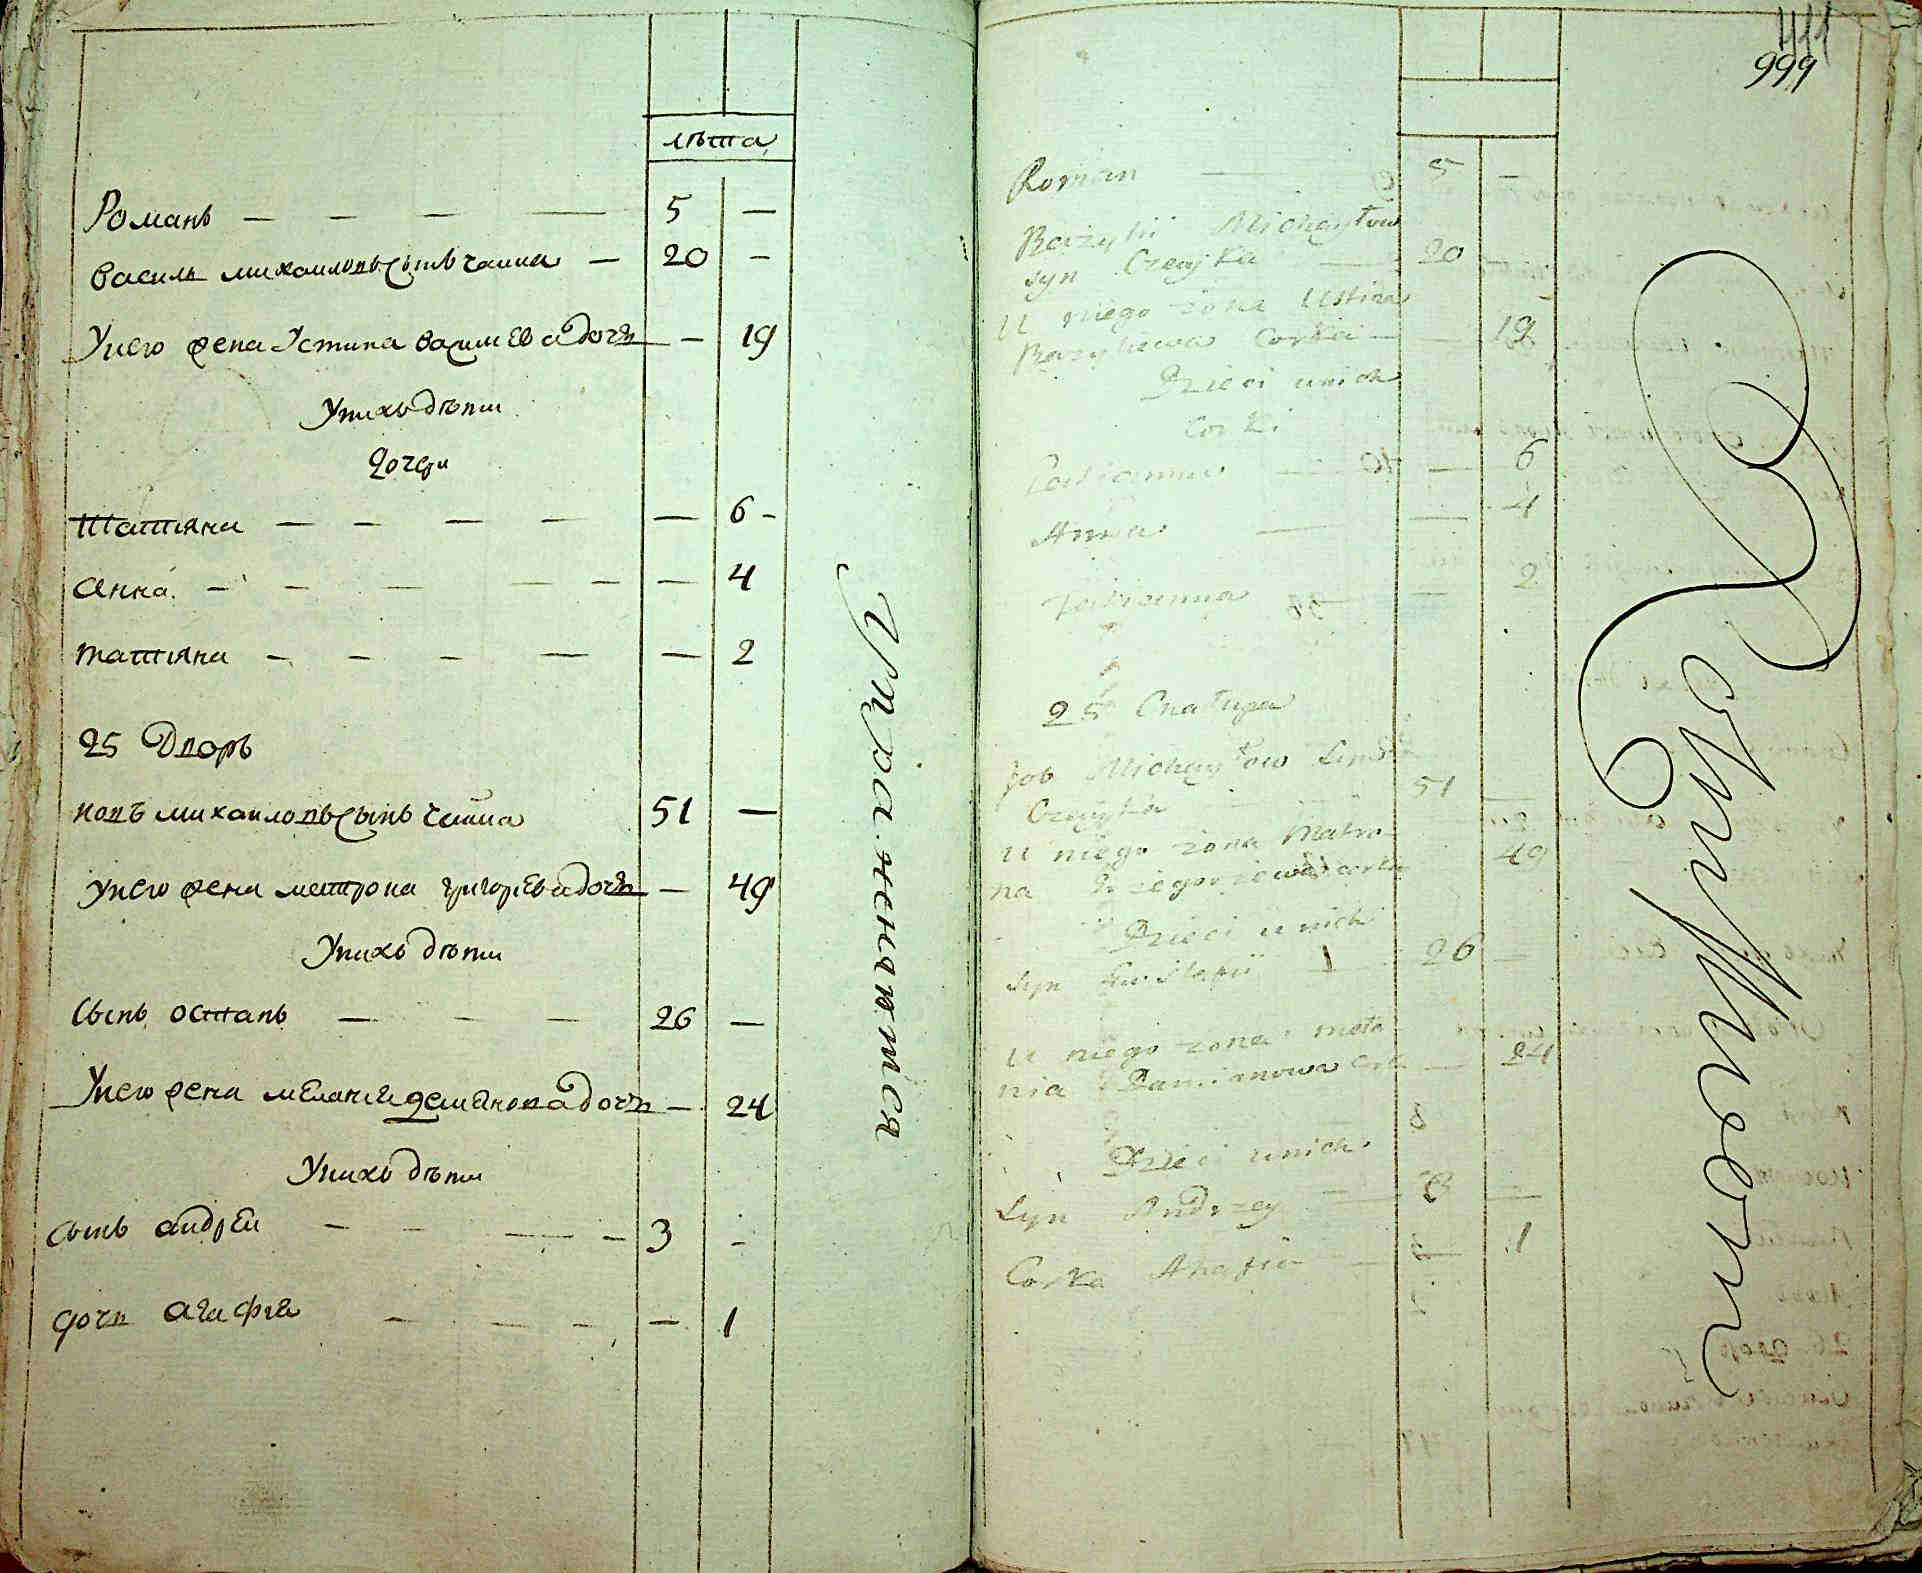 лѣта
Романъ — — — — 5 —
Василь михаиловъ сынъ чаика — 20 —
Унего жена Устина василева дочь — 19
Унихъ дѣти
Дочери
Татияна — — — — — 6 —
Анна — — — — — — 4
татияна — — — — — — 2
25 Дворъ
иовъ михаиловъ сынъ чаика 51 —
Унего жена матрона григорева дочь — 49
Унихъ дѣти
Сынъ остапъ — — — 26 —
Унего жена мелания демянова дочь — 24
Унихъ дѣти
Сынъ андреи — — — — 3 —
дочь агафия — — — — 1
411
999
Roman — 5 —
Bazylii Michayłow
syn Czayka — 20 —
U niego żona Ustina
Bazylewa Corka — — 19
Dzieci unich
Corki
Tatianna — — 6
Anna — — 4
Tatianna — — 2
25 Chałupa
Job Michayłow Syn
Czayka 51 —
U niego żona Matro-
na Grzegorzewa corka 49
Dzieci u nich
Syn Eustafii — 26 —
U niego żona Mela-
nia Damianowa cor — 24
Dzieci unich
Syn Andrzey — 3 —
Corka Ahafia — — 1